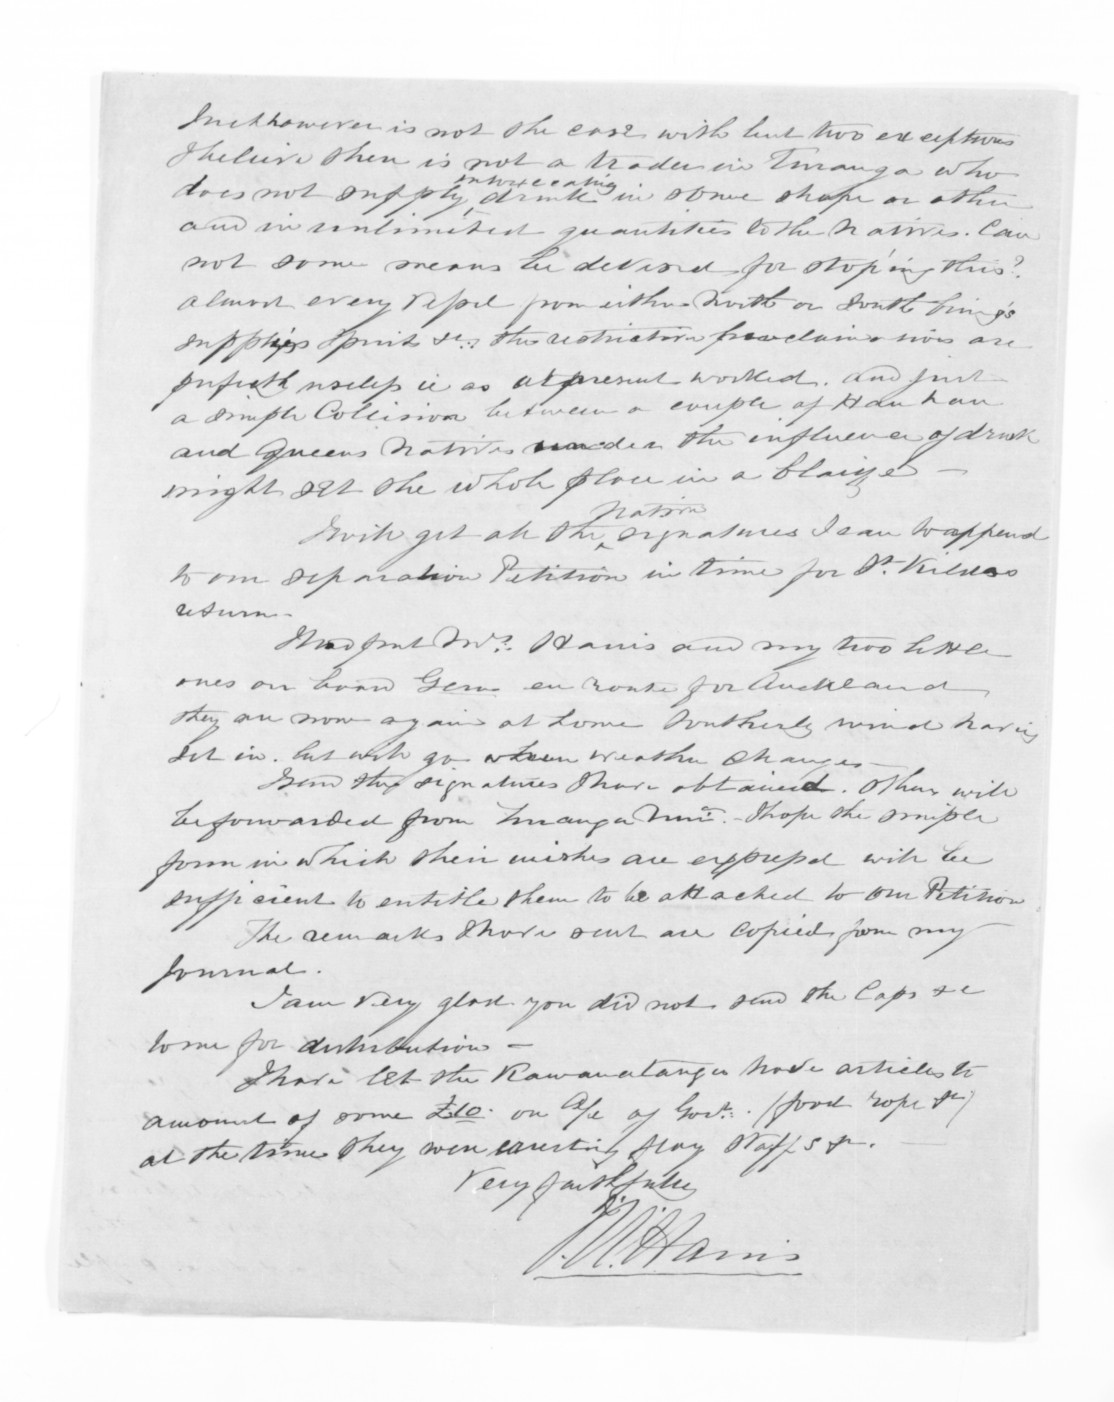 Such however is not the case with but two exceptions
I believe there is not a trader in Turanga who
does not supply intoxecating drink in some shape or other
and in unlimited quantities to the Natives. Can
not some means be devised for stop'ing this?
almost every Vessel from either North or South bring's
supplies Spirits &c: the restrictive proclamations are
perfectly useless ie as at present worked. and just
a simple Collision between a couple of Hau hau
and Queens Natives under the influence of drink
might set the whole place in a blaize —
I will get all the native signatures I can to append
to our separation Petition in time for St. Kildas
return.
I had put Mrs. Harris and my two little
ones on board Gem en route for Auckland
they are now again at home Southerly wind having
set in. but will go when weather changes —
I send the signatures I have obtained. Others will
be forwarded from Turanga. I hope the simple
form in which their wishes are expressed will be
sufficient to entitle them to be attached to our Petition
The remarks I have sent are copied from my
Journal.
I am very glad you did not send the Caps &c
to me for distribution —
I have let the Rawanatanga have articles to
amount of some £10. on A/c of Govt. (food rope &c)
at the time they were erecting flag Staffs &c. —
Very faithfully
J. W. Harris